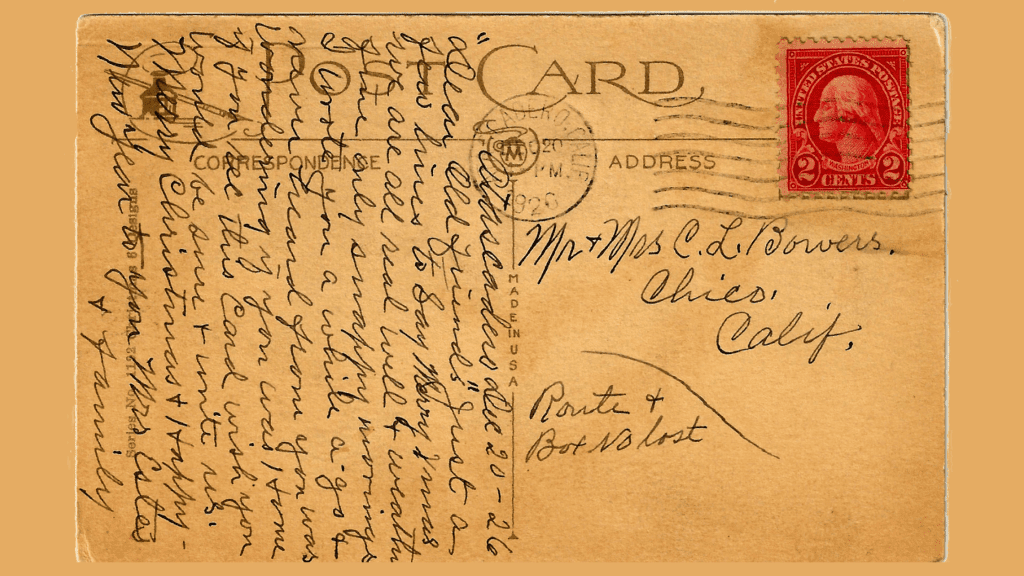 POST CARD
CORRESPONDENCE
ADDRESS
UNITED STATES POSTAGE
WASHINGTON
2 CENTS 2
CALIF.
20
PM
1926
M
MADE IN USA
Mr + Mrs C. L. Bowers.
Chico.
Calif.
Route +
Box No lost
Dec 20-26
"Dear Old Friends" Just a
few lines to Say Merry Xmas
we are all real well + weather
fine only snappy mornings
I wrote you a while a-go +
never heard from you was
wondering if you was home
if you rec this Card wish you
would be sure + write us.
Merry Christmas + Happy-
New Year to you Mrs Estes
+ Family